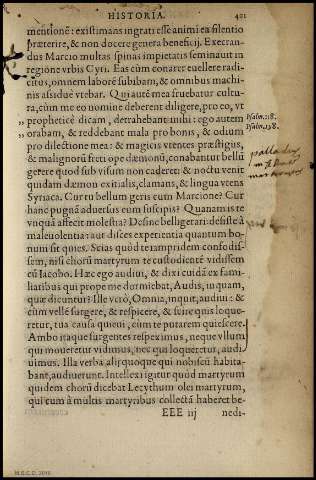 HISTORIA. 401
mentione: existimans ingrati esse animi ea silentio
præterire, & non docere genera beneficij. Execran-
dus Marcio multas spinas impietatis seminauit in
regione vrbis Cyri. Eas cùm conarer euellere radi-
citus, omnem laborē subibam, & omnibus machi-
nis assiduè vtebar. Qui autē mea fruebatur cultu-
ra, cùm me eo nomine deberent diligere, pro eo, vt
„ propheticè dicam, detrahebant mihi: ego autem
„ orabam, & reddebant mala pro bonis, & odium
Psalm.118.
Psalm.138.
pro dilectione mea: & magicis vtentes præstigijs,
& malignorū freti ope dæmonū, conabantur bellū
gerere quod sub visum non caderet: & noctu venit
quidam dæmon exitialis, clamans, & lingua vtens
Syriaca. Cur tu bellum geris cum Marcione? Cur
hanc pugnā aduersus eum suscipis? Quanam is te
vnquā affecit molestia? Desine belligerari: desiste à
maleuolentia: aut disces experientia quantum bo-
num sit quies. Scias quòd te iampridem confodis-
sem, nisi chorū martyrum te custodientē vidissem
cū Iacobo. Hæc ego audiui, & dixi cuidā ex fami-
liaribus qui prope me dormiebat, Audis, ìnquam,
quæ dicuntur? Ille verò, Omnia, inquit, audiui: &
cùm velle surgere, & respicere, & scire quis loque-
retur, tua causa quieui, cùm te putarem quiescere.
Ambo itaque surgentes respeximus, neque vllum
qui moueretur vidimus, nec qui loqueretur, audi-
uimus. Illa verba alij quoque qui nobiscū habita-
bant, audiuerunt. Intellexi igitur quòd martyrum
quidem chorū dicebat Lecythum olei martyrum,
qui cum à multis martyribus collectā haberet be-
EEE iij nedi-